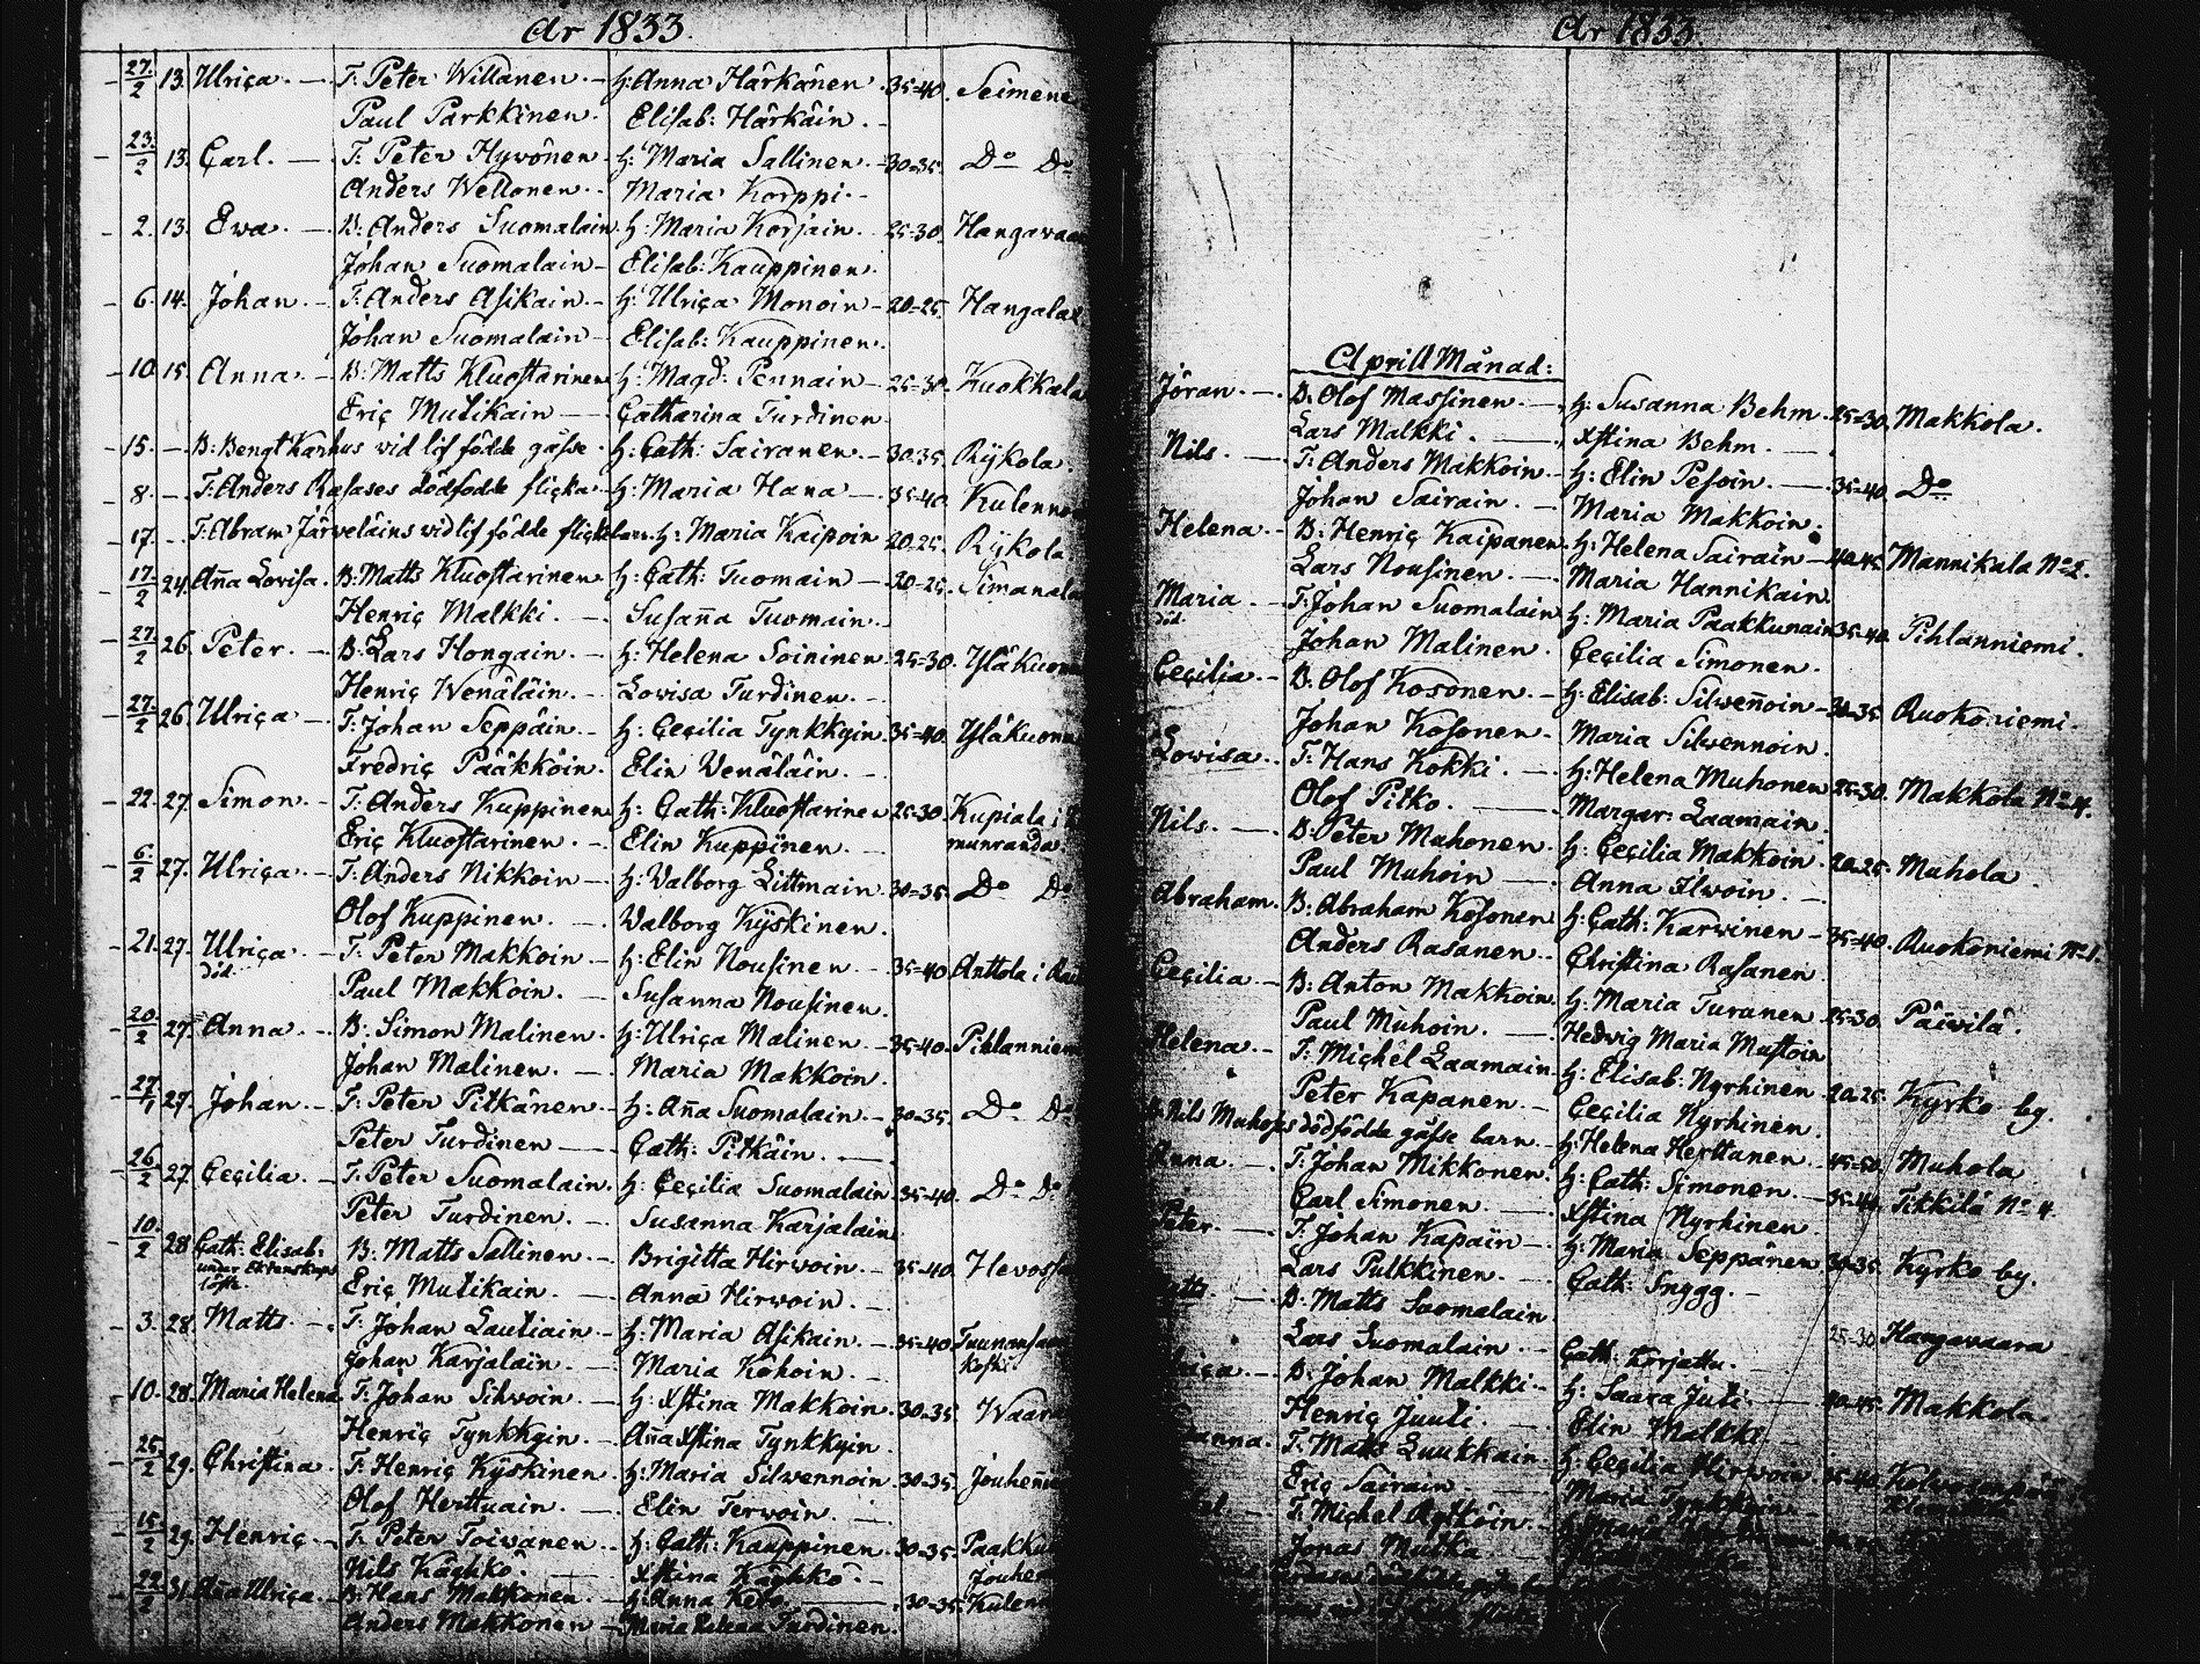 År 1833.
27/2 13. Ulrica. — T. Peter Willanen. — H: Anna Härkänen 35-40. Seimene
Paul Parkkinen. Elisab: Härkäin.
23/2 13. Carl. — T: Peter Hyvönen H: Maria Sallinen. 30-35. Do Do
Anders Wellonen. Maria Korppi.
2. 13. Ewa. — B: Anders Suomalain H: Maria Korjain. 25-30. Hangawaa
Johan Suomalain Elisab: Kauppinen.
6. 14. Johan. — T: Anders Asikain. H: Ulrica Monoin 20-25. Hangala
Johan Suomalain Elisab: Kauppinen.
10. 15. Anna. — B: Matts Kluostarinen H: Magd: Pennain 25-30. Kuokkala
Eric Mutikain Catharina Turdinen
15. — B: Bengt Karhus vid lif födde gåsse. H: Cath: Sairanen. 30-35. Rijkola.
8. — T. Anders Rasases dödfödde flicka H: Maria Hana 35-40. Kulenno
17. — T. Abram Järveläins vid lif födde flickebarn. H: Maria Kaipoin 20-25. Rijkola
17/2 24. Aña Lovisa. B: Matts Kluostarinen H: Cath: Tuomain 30-25. Simanala
Henric Malkki. Susaña Tuomain.
27/2 26. Peter. — B. Lars Hongain. H: Helena Soininen 25-30. Yläkuon
Henric Wenäläin. Lovisa Turdinen.
27/2 26. Ulrica — T: Johan Seppäin. H: Cecilia Tynkkyin. 35-40. Yläkuonn
Fredric Pääkköin. Elin Venäläin.
22. 27. Simon. — T: Anders Kuppinen H: Cath: Kluostarinen 25-30 Kupiala i
Eric Kluostarinen. Elin Kuppinen. munranda.
6/2 27. Ulrica. — T: Anders Nikkoin H: Valborg Littmain 30-35. Do Do
Olof Kuppinen. Valborg Kyskinen.
21. 27. Ulrica död. — T. Peter Makkoin H: Elin Nousinen. 35-40 Anttola i Rau
Paul Makkoin. Susanna Nousinen.
20/2 27. Anna. — B: Simon Malinen. H: Ulrica Malinen. 35-40. Pihlanniem
Johan Malinen. Maria Makkoin.
27/1 27. Johan. — T: Peter Pitkänen. H: Aña Suomalain. 30-35. Do Do
Peter Turdinen Cath: Pitkäin.
26/2 27. Cecilia. — T: Peter Suomalain. H: Cecilia Suomalain. 35-40. Do Do
Peter Turdinen. Susanna Karjalain
10/2 28 Cath: Elisab: B: Matts Sallinen. Brigitta Hirwoin. 35-40. Hevossa
under Ektenskaps löfte. Eric Mutikain. Anna Hirwoin.
3. 28. Matts — T: Johan Lautiain H: Maria Asikain. 35-40 Tuunansaa
Johan Karjalain. Maria Kohoin. koski.
10. 28. Maria Helena T: Johan Silwoin. H: Xstina Makkoin. 30-35 Waara
Henric Tynkkyin. Aña Xstina Tynkkyin.
25/2 29. Christina. T: Henric Kyskinen. H: Maria Silwennoin 30-35. Jouheñ
Olof Herttuain. Elin Terwoin.
15/2 29. Henric. — T. Peter Toiwanen. H: Cath: Kauppinen. 30-35. Paakku
Nils Käyhkö. Xstina Käyhkö. Jouhe
22/2 31. Aña Ulrica. B: Hans Makkonen. H: Anna 30-35. Kulenn
Anders Makkonen Maria Helena Turdinen.
År 1833.
Aprill Månad:
Jöran. — B. Olof Massinen. H: Susanna Behm. 25-30. Makkola.
Lars Malkki. Xstina Behm.
Nils. — T: Anders Makkoin. H: Elin Pesoin. 35-40. Do
Johan Sairain. Maria Makkoin.
Helena. — B: Henric Kaipanen. H: Helena Sairain 40-45. Mannikala No 2.
Lars Nousinen. Maria Hannikain.
Maria död. — T: Johan Suomalain H: Maria Paakkunain 35-40. Pihlanniemi.
Johan Malinen. Cecilia Simonen.
Cecilia. — B. Olof Kosonen. H: Elisab: Silweñoin 30-35 Ruokoniemi.
Johan Kosonen. Maria Silwennoin.
Lovisa. T: Hans Kokki. H: Helena Muhonen 25-30. Makkola No 4.
Olof Pitko. Margar: Laamain.
Nils. — B: Peter Muhonen. H: Cecilia Makkoin. 20-25. Muhola
Paul Muhoin Anna Ilwoin.
Abraham. B: Abraham Kosonen H: Cath: Karwinen 35-40. Ruokoniemi No 1.
Anders Rasanen. Christina Rasanen.
Cecilia. — B: Anton Makkoin. H: Maria Turanen 25-30 Päiwilä.
Paul Muhoin. Hedwig Maria Mustoin
Helena. — T: Michel Laamain. H: Elisab: Nyrhinen 20-25. Kyrko by.
Peter Kapanen. Cecilia Nyrhinen.
Nils Muhoins dödfödde gåsse barn. H: Helena Herttanen. 45-50. Muhola
Anna. — T: Johan Mikkonen. H: Cath: Simonen. 35-40. Tikkilä No 4.
Carl Simonen. Xstina Nyrhinen.
Peter. — T: Johan Kapain H: Maria Seppänen. 30-35 Kyrko by.
Lars Pulkkinen. Cath: Snygg.
B: Matts Suomalain 25-30 Hangawaara
Lars Suomalain Cath: Korjattu.
B: Johan Malkki. H: Saara Juti. 40-45. Makkola.
Henric Juuti. Elin Malkki
anna. T: Matts Luukkain H: Cecilia Hirwoin 35-40
Eric Sairain Maria Tynkkyin
T: Michel Rytköin. H: Maria
Jonas Mutka